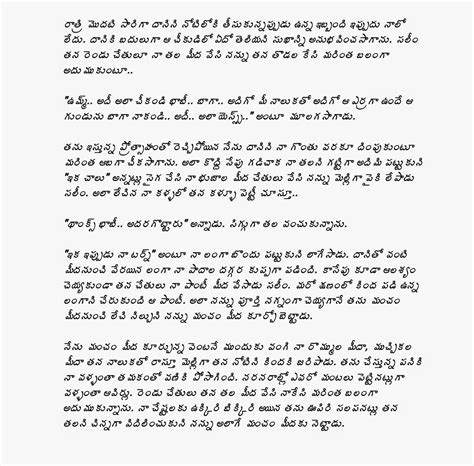 రాత్రి మొదటి సారిగా దానిని నోటిలోకి తీసుకున్నప్పుడు ఉన్న ఇబ్బంది ఇప్పుడు నాలో
లేదు. దానికి బదులుగా ఆ చీకుడిలో ఏదో తెలియని సుఖాన్ని అనుభవించసాగాను. సలీం
తన రెండు చేతులూ నా తల మీద వేసి నన్ను తన తొడల కేసి మరింత బలంగా
అదుముకుంటూ..
"ఉమ్మ్.. అదీ అలా చీకండి భాభీ.. బాగా.. అదిగో మీ నాలుకతో అదిగో ఆ ఎర్రగా ఉందే ఆ
గుండును బాగా నాకండి.. అదీ.. అలా యెస్స్స్.." అంటూ మూలగసాగాడు.
తను ఇస్తున్న ప్రోత్సాహంతో రెచ్చిపోయిన నేను దానిని నా గొంతు వరకూ దింపుకుంటూ
మరింత ఆబగా చీకసాగాను. అలా కొద్ది సేపు గడిచాక నా తలని గట్టిగా అదిమి పట్టుకుని
"ఇక చాలు" అన్నట్లు సైగ చేసి నా భుజాల మీద చేతులు వేసి నన్ను మెల్లిగా పైకి లేపాడు
సలీం. అలా లేచిన నా కళ్ళలో తన కళ్ళూ పెట్టీ చూస్తూ..
"థాంక్స్ భాభీ.. అదరగొట్టారు" అన్నాడు. సిగ్గుగా తల వంచుకున్నాను.
"ఇక ఇప్పుడు నా టర్న్" అంటూ నా లంగా బొందు పట్టుకుని లాగేసాడు. దానితో వంటి
మీదనుంచి వేరయిన లంగా నా పాదాల దగ్గర కుప్పగా పడింది. కాసేపు కూడా ఆలశ్యం
చెయ్యకుండా తన చేతులు నా పాంటీ మీద వేసాడు సలీం. మరో క్షణంలో కింద పడి ఉన్న
లంగాని చేరుకుంది ఆ పాంటీ. అలా నన్ను పూర్తి నగ్నంగా చెయ్యగానే తను మంచం
మీదనుంచి లేచి నిల్చుని నన్ను మంచం మీద కూర్చో బెట్టాడు.
నేను మంచం మీద కూర్చున్న వెంటనే ముందుకు వంగి నా రొమ్ముల మీదా, ముచ్చికల
మీదా తన నాలుకతో రాస్తూ మెల్లిగా తన నోటిని కిందకి జరిపాడు. తను చేస్తున్న పనికి
నా వళ్ళంతా తమకంతో వణికి పోసాగింది. నరనరాల్లో ఎవరో మంటలు పెట్టినట్లుగా
వళ్ళంతా ఆవిర్లు. రెండు చేతులు తన తల మీద వేసి నాకేసి మరింత బలంగా
అదుముకున్నాను. నా చేష్టలకు ఉక్కిరి బిక్కిరి అయిన తను ఊపిరి సలపనట్లు తన
తలని చిన్నగా విదిలించుకుని నన్ను అలాగే మంచం మీదకు నెట్టాడు.